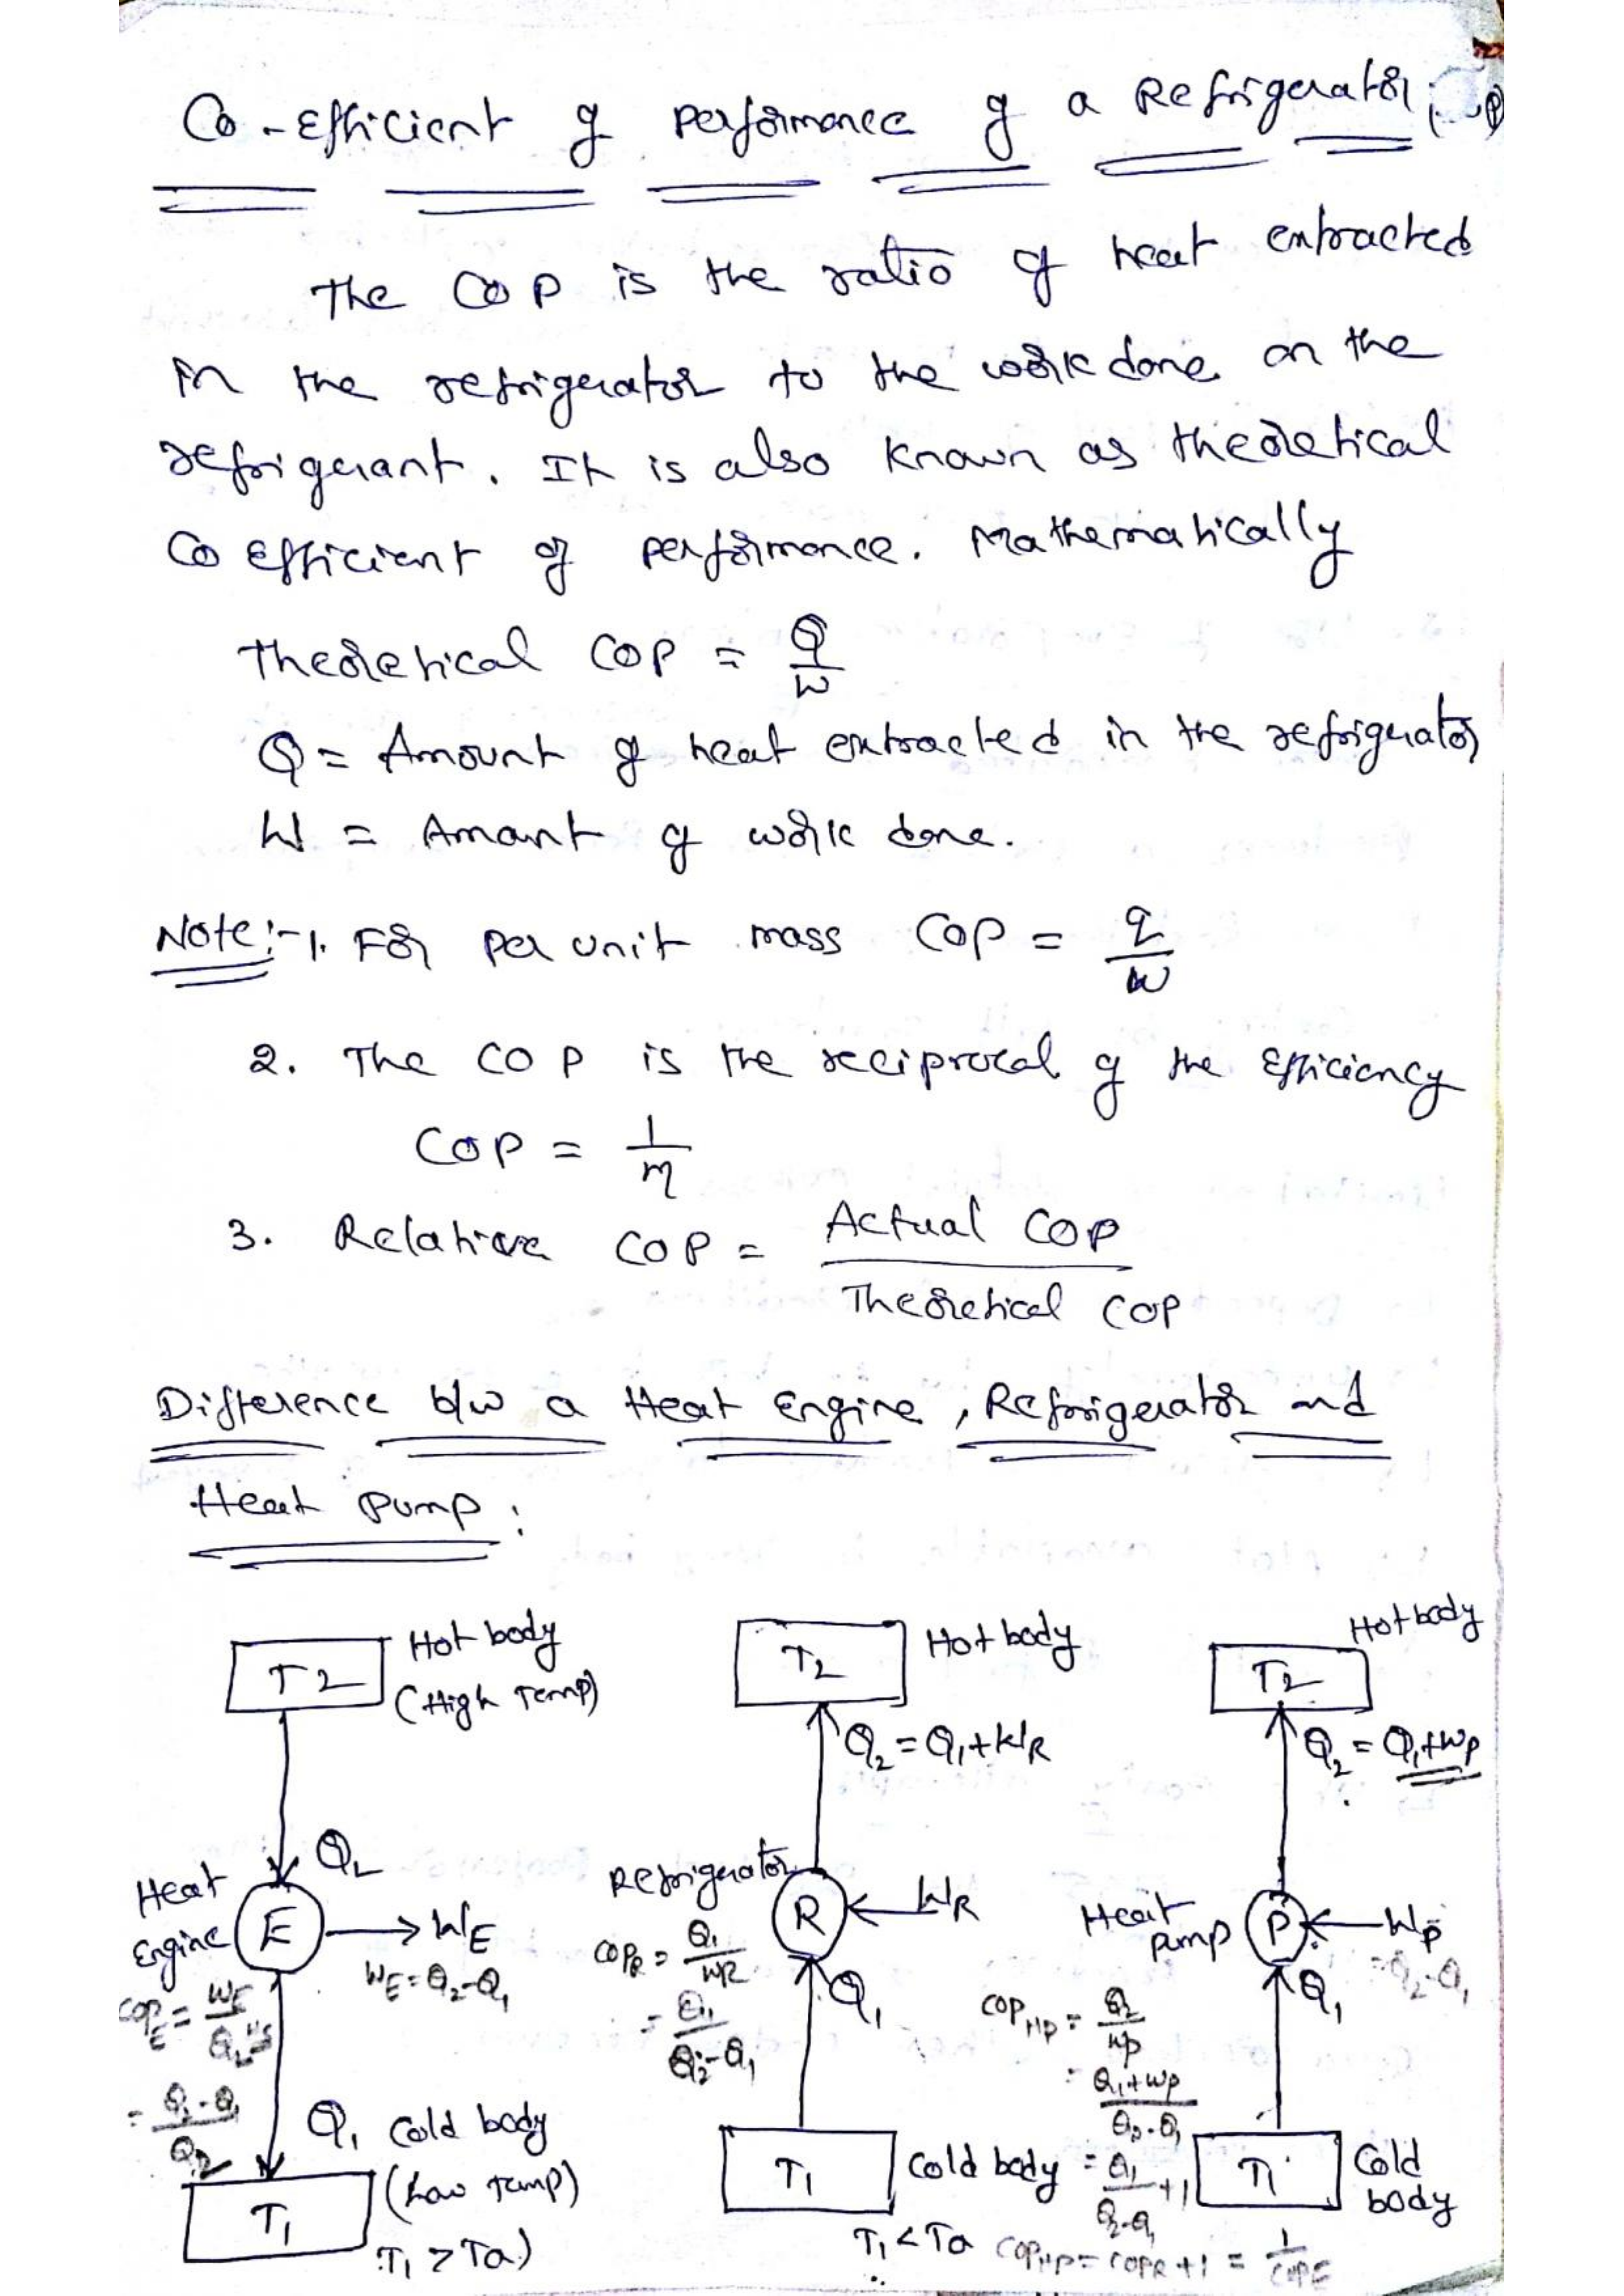 Co-efficient of performance of a Refrigerator:
The COP is the ratio of heat extracted
in the refrigerator to the work done on the
refrigerant. It is also known as theoretical
Coefficient of performance. Mathematically
Theoretical COP = Q/W
Q = Amount of heat extracted in the refrigerator
W = Amount of work done.
Note:- 1. For per unit mass COP = q/w
2. The COP is the reciprocal of the Efficiency
COP = 1/η
3. Relative COP = Actual COP / Theoretical COP
Difference b/w a Heat Engine, Refrigerator and
Heat Pump:
T2 Hot body
(High Temp)
Q2
Heat
Engine E
WE
WE = Q2-Q1
COPE = WE/Q2
= Q2-Q1/Q2
Q1 Cold body
(Low Temp)
T1
T1 > Ta)
T2 Hot body
Q2 = Q1+WR
Refrigerator
R WR
COPR = Q1/WR
= Q1/Q2-Q1
Q1
T1 Cold body
T1 < Ta
Hot body
T2
Q2 = Q1+WP
Heat
pump P WP
= Q2-Q1
Q1
COPHP = Q2/WP
= Q1+WP/Q2-Q1
= Q1/Q2-Q1 +1
T1 Cold
body
COPHP = COPR+1 = 1/COPE